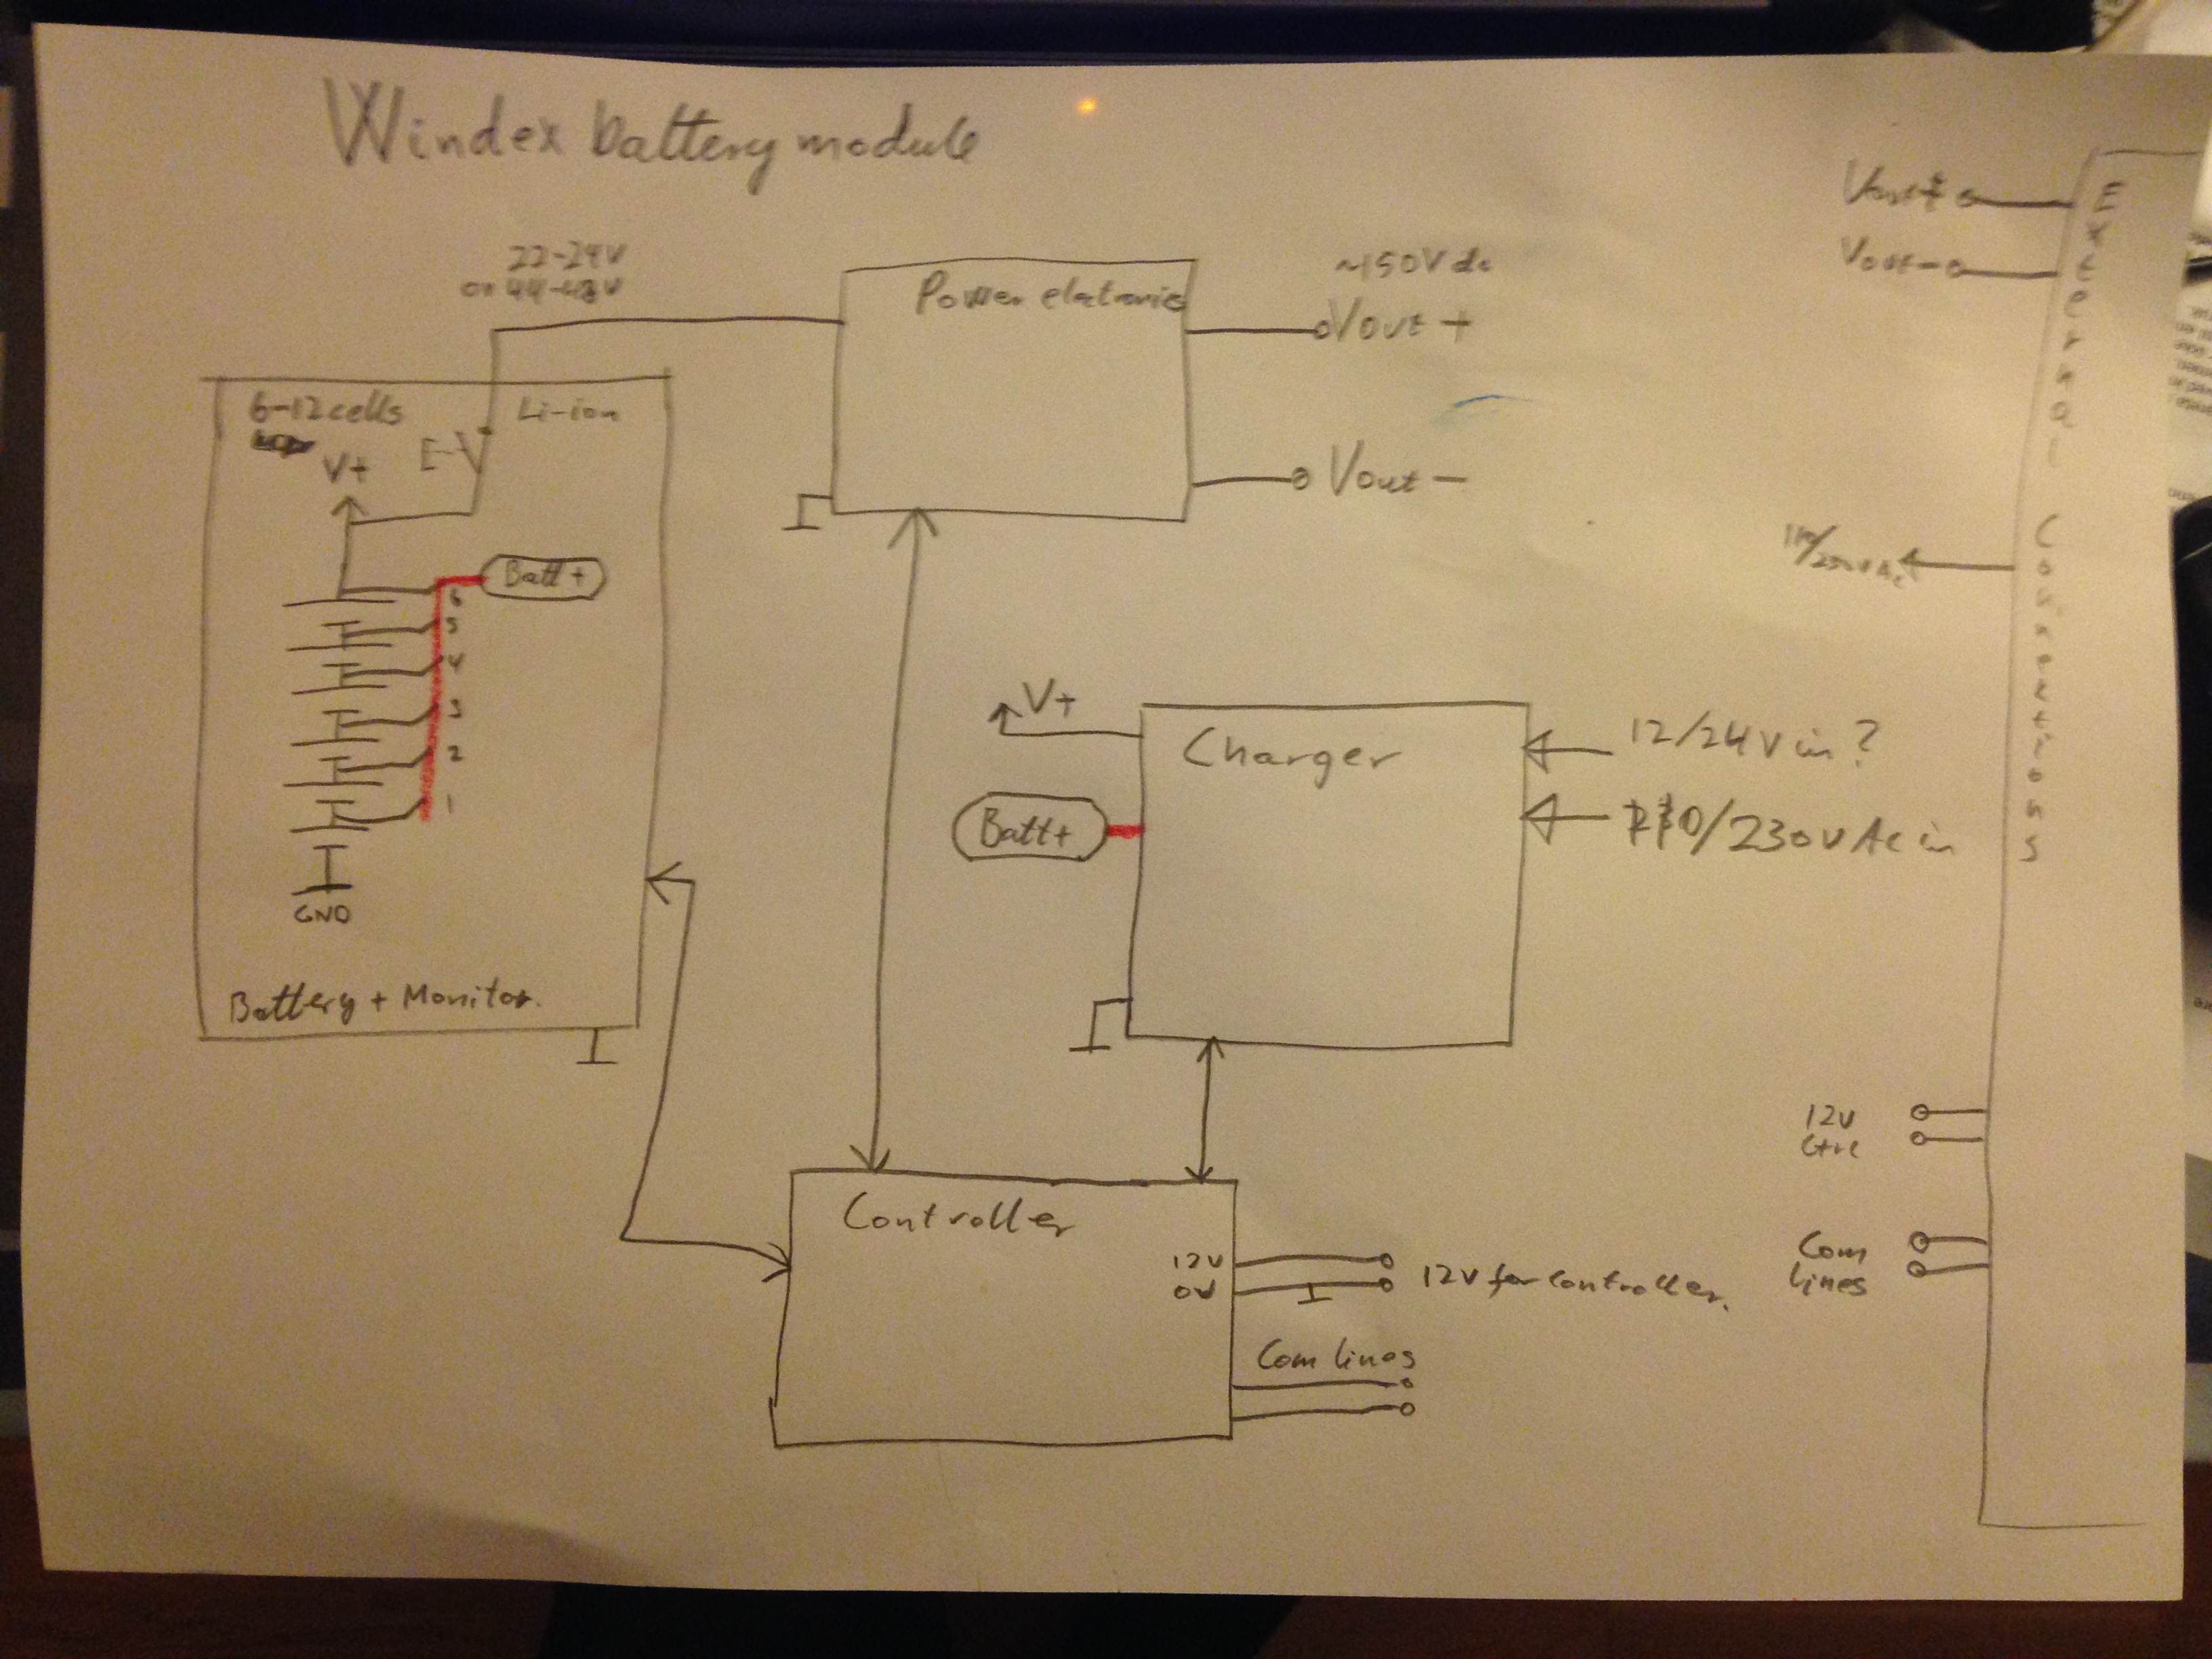 Windex battery module
22-24V
or 44-48V
6-12 cells
Li-ion
V+
Batt+
6
5
4
3
2
1
GND
Battery + Monitor.
Power elctronics
~150V dc
Vout +
Vout -
V+
Charger
Batt+
12/24V in?
/230V Ac in
Controller
12V
0V
12V for controller.
Com lines
Vout+
Vout-
110/230V Ac
12V
Ctrl
Com
lines
External Connections